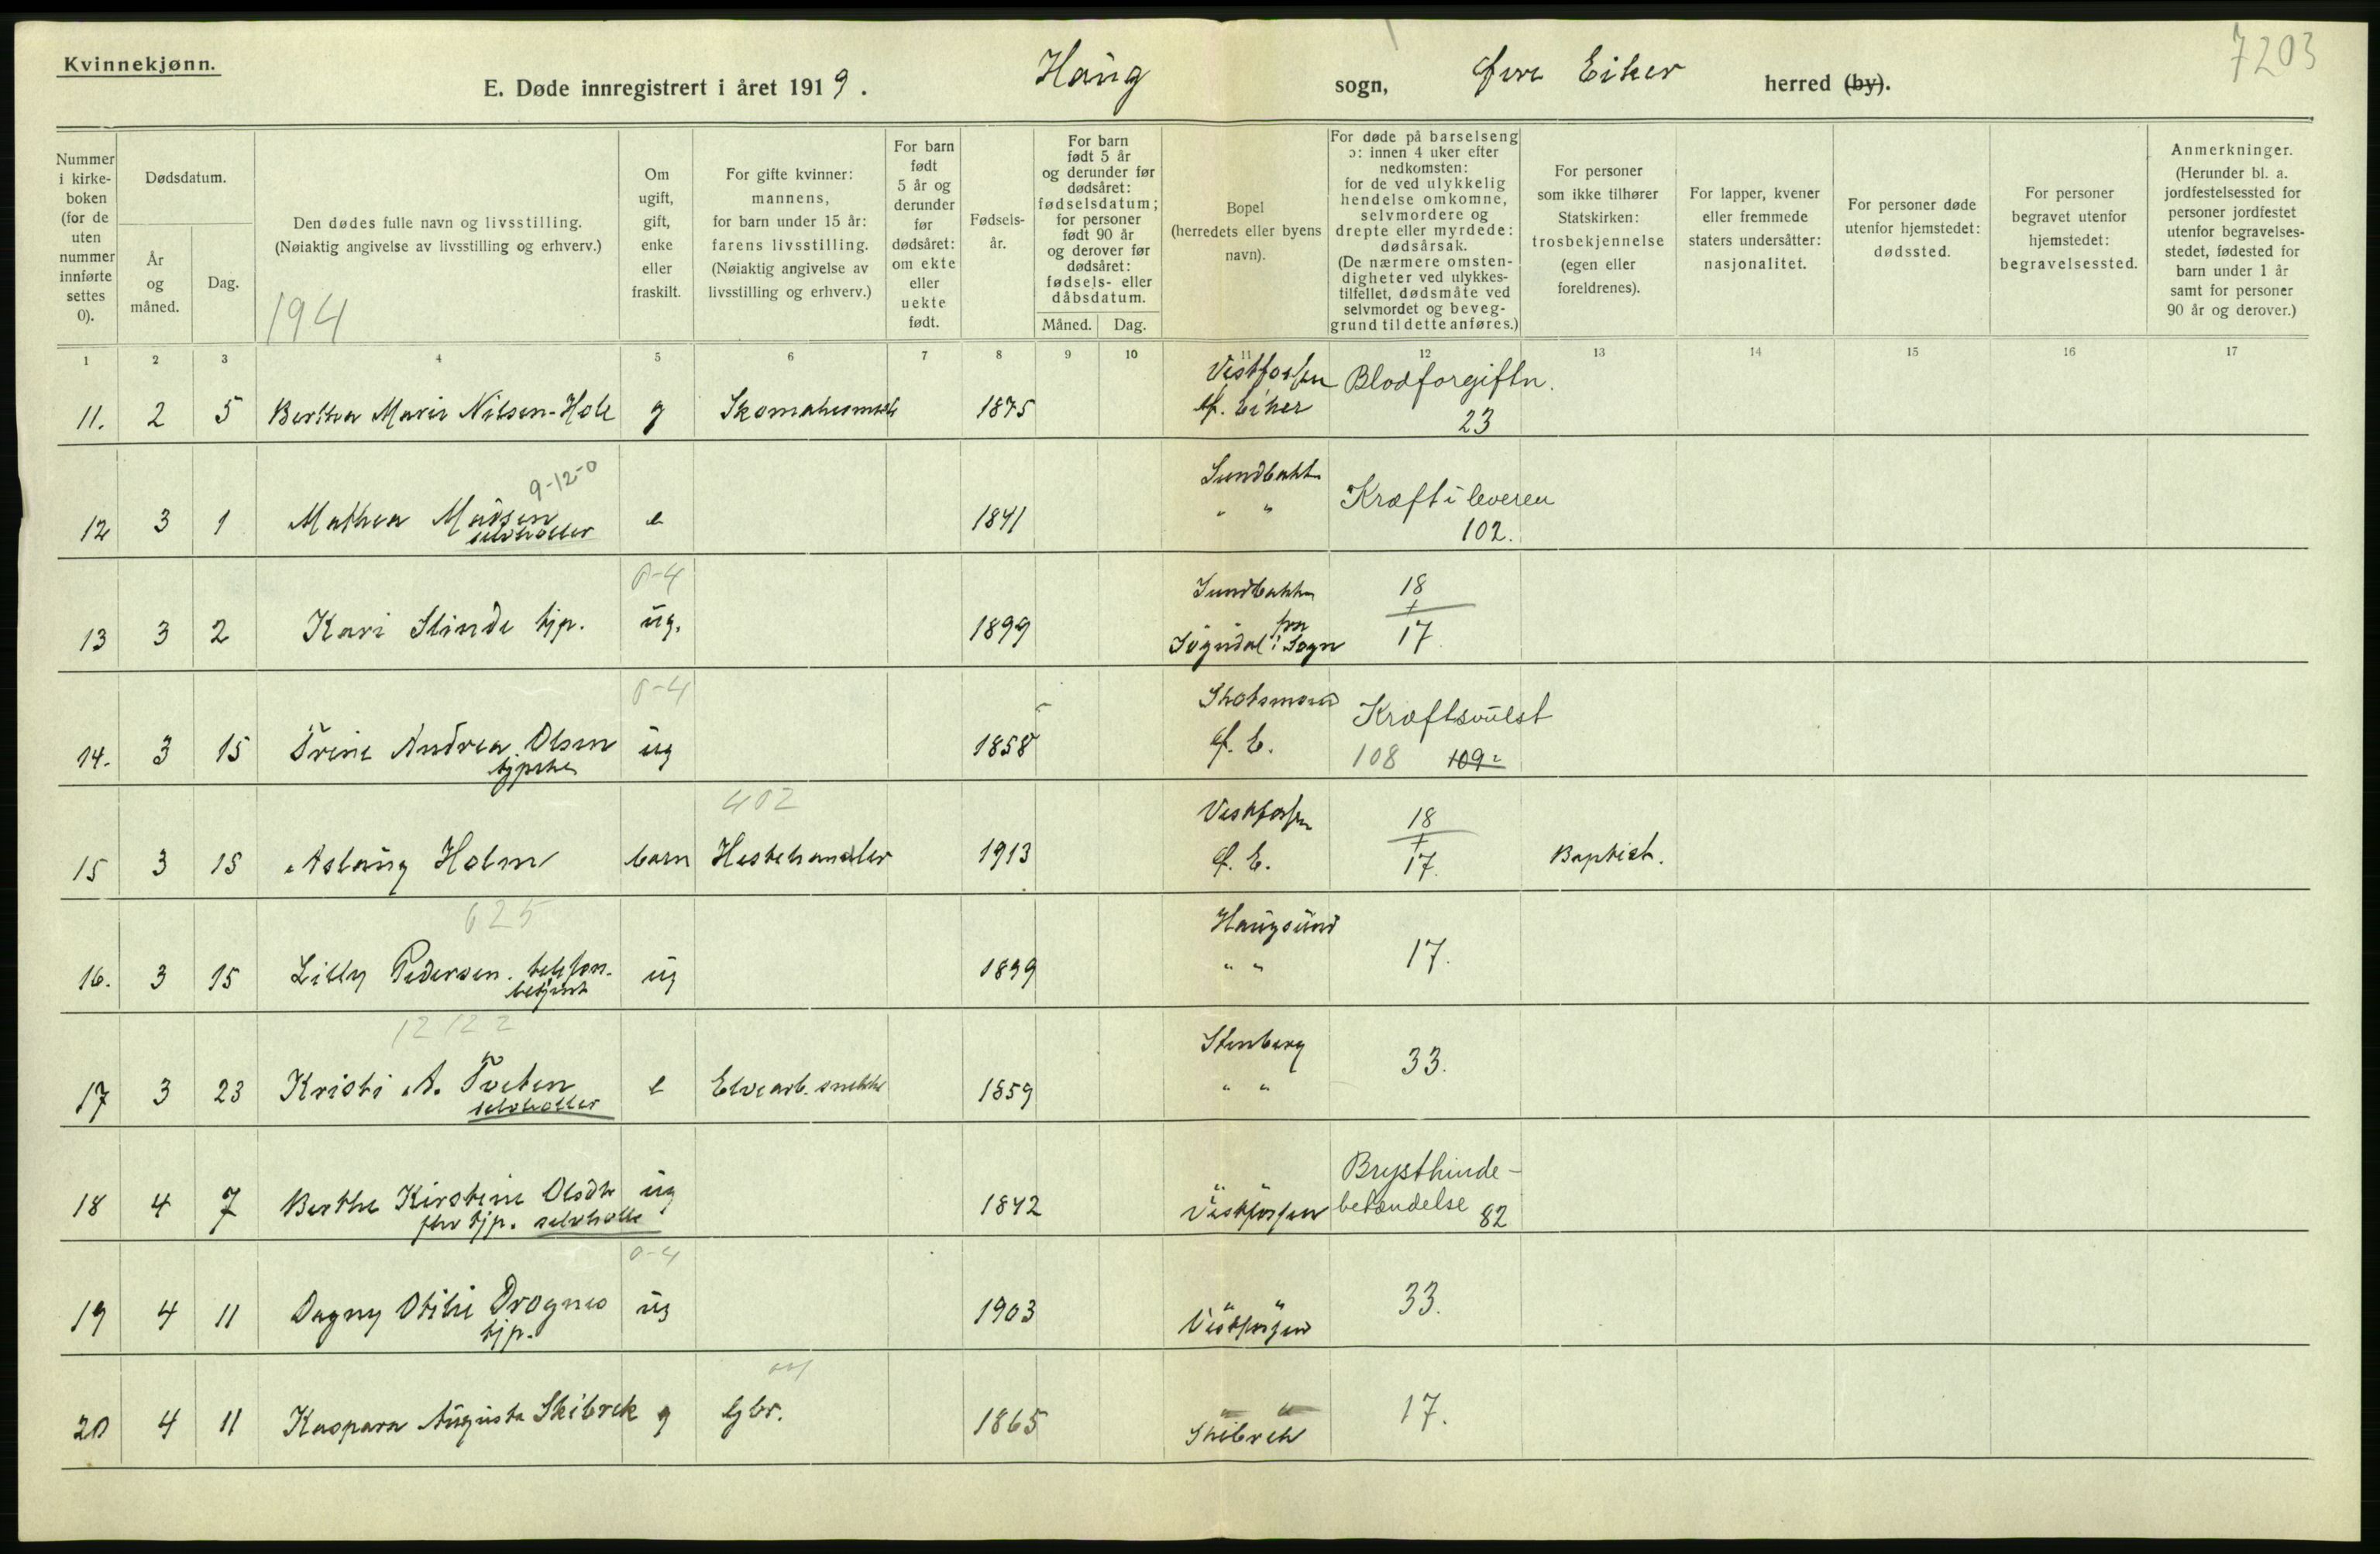 Kvinnekjønn.
7203
E. Døde innregistrert i året 1919. Haug sogn, Øvre Eiker herred (by).
Nummer i kirkeboken (for de uten nummer innførte settes 0).
Dødsdatum.
År og måned.
Dag.
Den dødes fulle navn og livsstilling.
(Nøiaktig angivelse av livsstilling og erhverv.)
194
Om ugift, gift, enke eller fraskilt.
For gifte kvinner: mannens, for barn under 15 år: farens livsstilling. (Nøiaktig angivelse av livsstilling og erhverv.)
For barn født 5 år og derunder før dødsåret: om ekte eller uekte født.
Fødselsår.
For barn født 5 år og derunder før dødsåret: fødselsdatum; for personer født 90 år og derover før dødsåret: fødsels- eller dåbsdatum.
Måned. Dag.
Bopel (herredets eller byens navn).
For døde på barselseng ɔ: innen 4 uker efter nedkomsten: for de ved ulykkelig hendelse omkomne, selvmordere og drepte eller myrdede: dødsårsak. (De nærmere omstendigheter ved ulykkestilfellet, dødsmåte ved selvmordet og beveggrund til dette anføres.)
For personer som ikke tilhører Statskirken: trosbekjennelse (egen eller foreldrenes).
For lapper, kvener eller fremmede staters undersåtter: nasjonalitet.
For personer døde utenfor hjemstedet: dødssted.
For personer begravet utenfor hjemstedet: begravelsessted.
Anmerkninger. (Herunder bl. a. jordfestelsessted for personer jordfestet utenfor begravelsesstedet, fødested for barn under 1 år samt for personer 90 år og derover.)
1 2 3 4 5 6 7 8 9 10 11 12 13 14 15 16 17
11. 2 5 Berthea Marie Nilsen-Hole g 1875 Vestfossen Ø. Eiker Blodforgiftn. 23
9-12-0
12 3 1 Mathea Madsen selvholder e 1841 Sundbakk " " Kræft i leveren 102.
0-4
13 3 2 Kari Slinde tjp. ug. 1899 Sundbakken fra Sogndal i Sogn 18 + 17
0-4
14. 3 15 Trine Andrea Olsen ug 1858 Ø. E. Kræftsvulst 108 109
402
15 3 15 Aslaug Holm barn Hestehandler 1913 Vestfossen Ø. E. 18 + 17. Baptist.
625
16. 3 15 Lilly Pedersen telefonbetjent ug 1899 Haugsund " " 17.
12 12 2
17 3 23 Kristi A. Tveten selvholder e Elvearb. snekker 1859 Stenberg " " 33.
18 4 7 Berthe Kirstine Olsdtr ug 1842 " " Vestfossen Brysthindebetændelse 82
fhv tjp. selvholde
0-4
19 4 11 Dagny Otilie Drognes tjp. ug 1903 " " Vestfossen 33.
20 4 11 Kaspara Augusta Skibrek g Gbr. 1865 " " Skibrek 17.